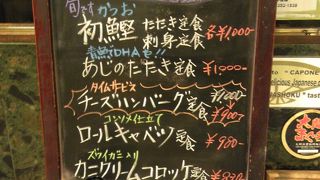 旬です かつお
初鰹 たたき定食 刺身定食 各¥1,000-
青魚DHA
あじのたたき定食 ¥1,000-
タイムサービス
チーズハンバーグ定食 ¥1,000- ¥900-
コンソメ仕立て
ロールキャベツ定食 ¥980-
ズワイカニ入り
カニクリームコロッケ定食
"CAPONE
Delicious Japanese
WASHOKU"